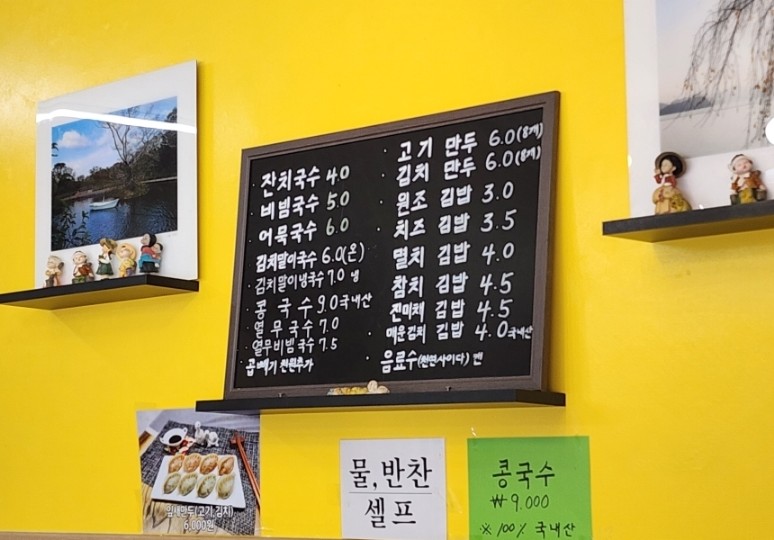 잔치국수 4.0
비빔국수 5.0
어묵국수 6.0
김치말이국수 6.0(온)
김치말이냉국수 7.0 냉
콩국수 9.0 국내산
열무국수 7.0
열무비빔국수 7.5
곱빼기 천원추가
고기 만두 6.0(8개)
김치 만두 6.0(8개)
원조 김밥 3.0
치즈 김밥 3.5
멸치 김밥 4.0
참치 김밥 4.5
진미채 김밥 4.5
매운김치 김밥 4.0 국내산
음료수(천연사이다) 캔
잎새만두(고기,김치)
6,000원
물,반찬
셀프
콩국수
₩9,000
※ 100% 국내산